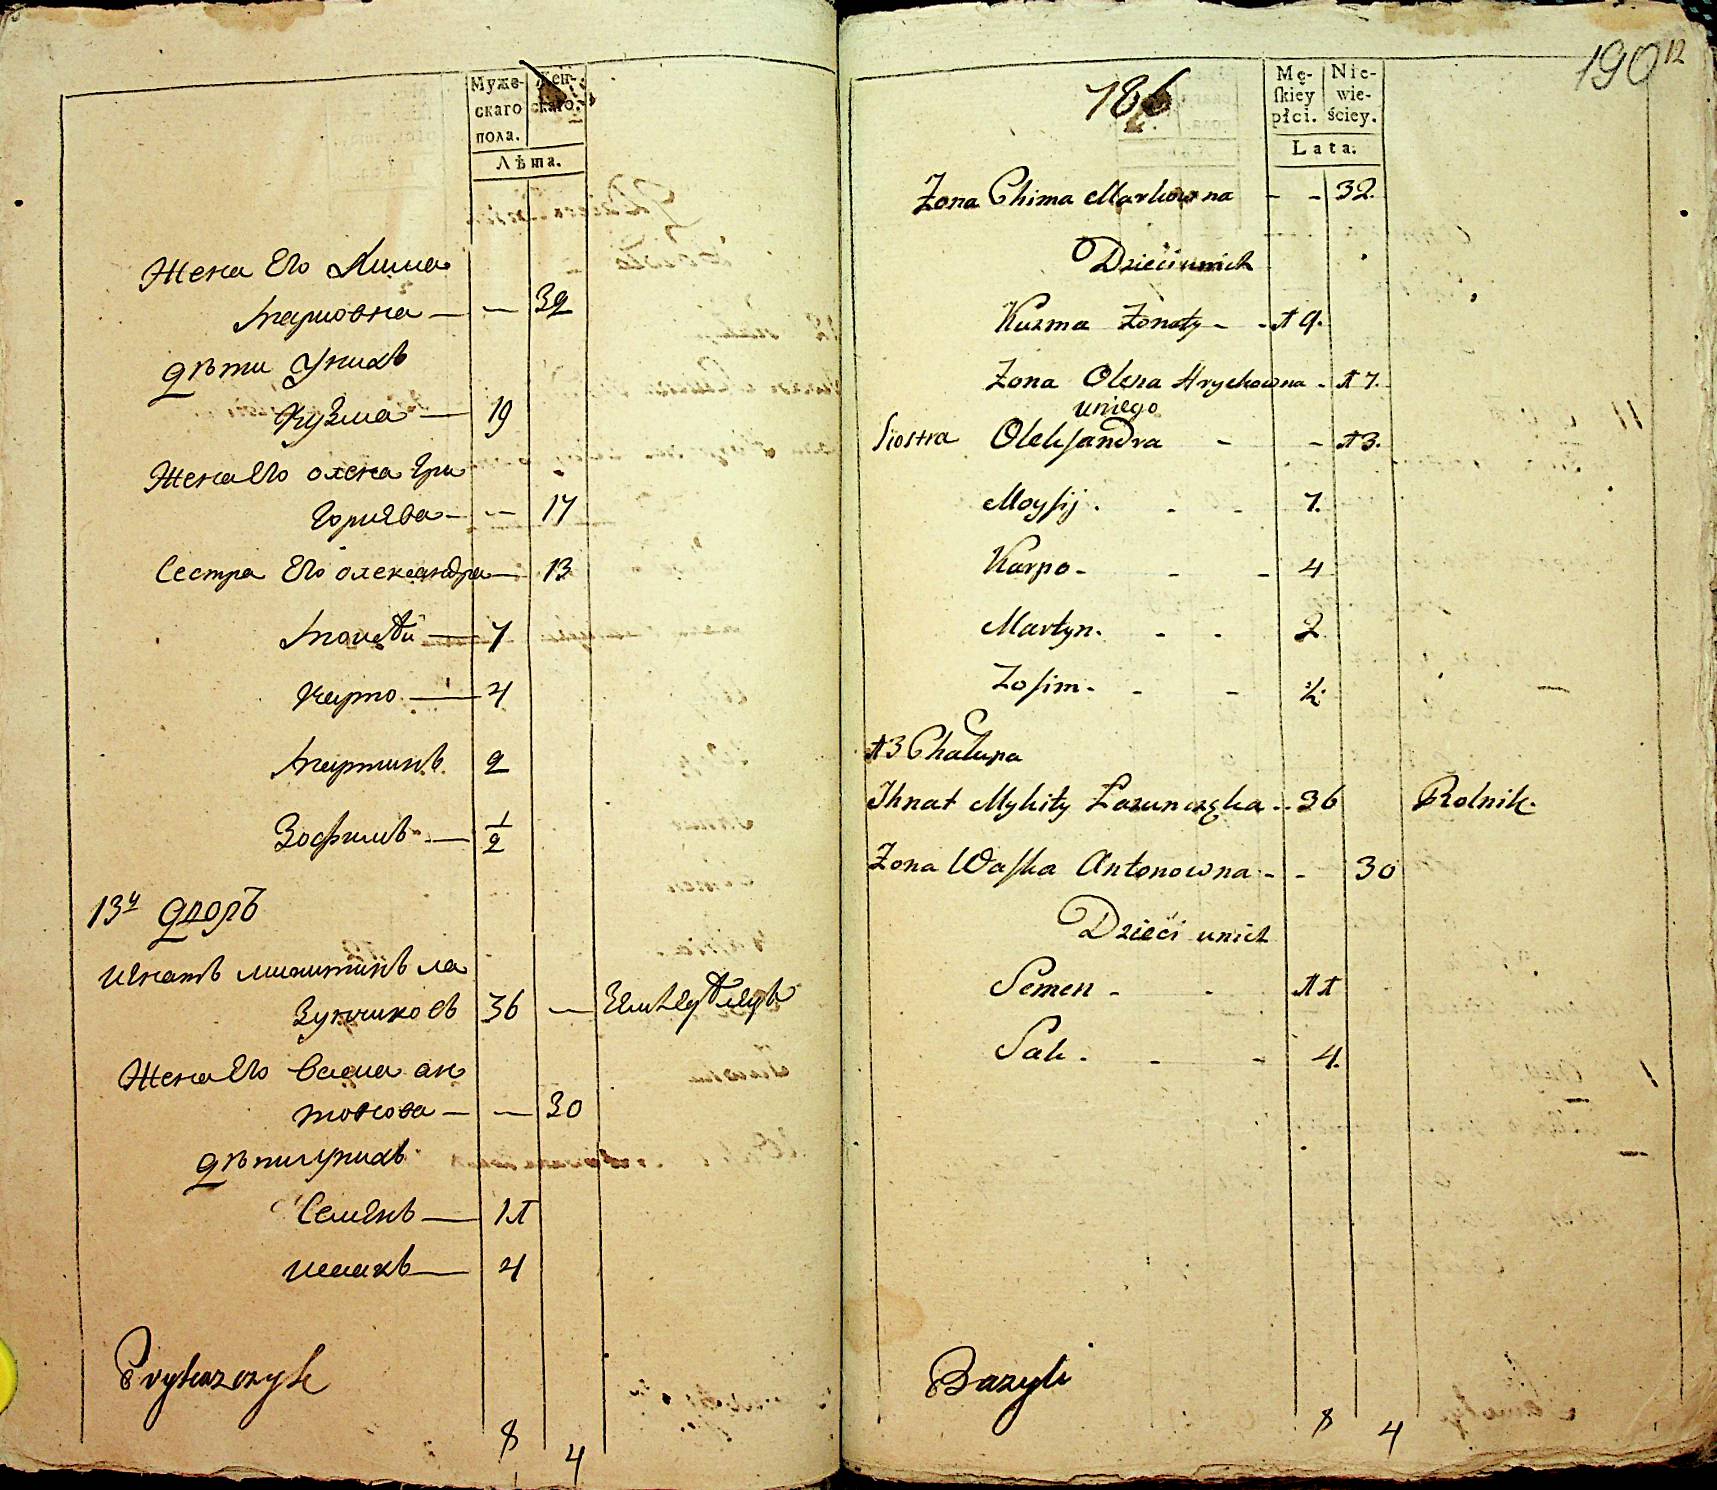 Муже-
скаго
пола.
Жен-
скаго.
Лѣта.
Жена Его Хима
Марковна — — 32
Дѣти Унихъ
Кузма — 19
Жена Его олена Гри
Горыева — — 17
Сестра Его олександра — 13
Моисѣй — 7
Карпо — 4
Мартинъ 2
Зосимъ — 1/2
13й Дворъ
Игнатъ микитинъ ла
Зунчиковъ 36 —
Жена Его васка ан
тонова — — 30
Дѣти унихъ
Семенъ — 11
исакъ — 4
Prykazczyk
8 4
190 12
186
Mę-
ſkiey
płci.
Nie-
wie-
ściey.
Lata.
Żona Chima Markowna - - 32.
Dzieći unich
Kuzma Żonaty - - 19.
Żona Olena Hryckowna - 17.
uniego
Siostra Olekſandra - - 13.
Moyſij . - - 7.
Karpo - - - 4
Martyn. - - 2
Zoſim - - - ½.
13 Chałupa
Ihnat Mykity Łazunczęka - - 36 Rolnik.
Żona Waſka Antonowna - - 30
Dzieći unich
Semen - - 11
Sak. - - 4.
Bazyli
8 4